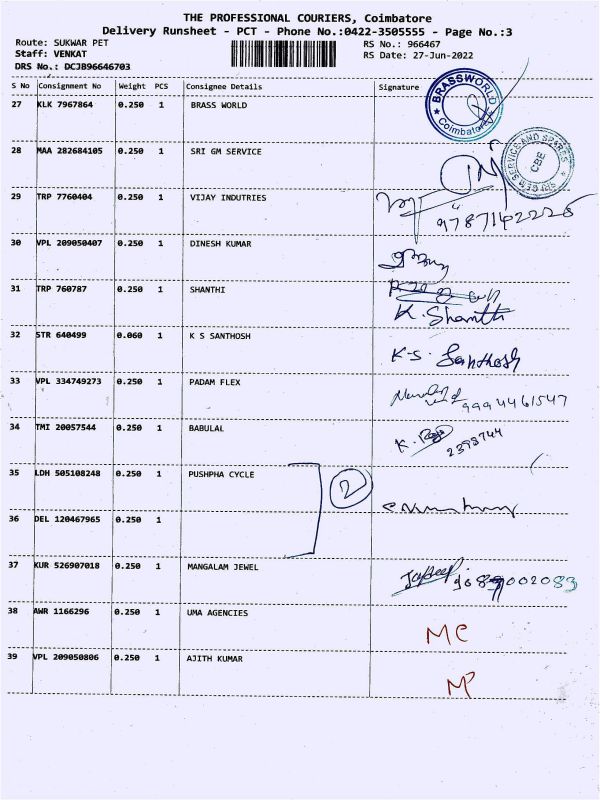 THE PROFESSIONAL COURIERS, Coimbatore
Delivery Runsheet - PCT - Phone No.:0422-3505555 - Page No.:3
Route: SUKWAR PET RS No.: 966467
Staff: VENKAT RS Date: 27-Jun-2022
DRS No.: DCJB96646703
S No Consignment No Weight PCS Consignee Details Signature
27 KLK 7967864 0.250 1 BRASS WORLD BRASSWORLD Coimbatore
28 MAA 282684105 0.250 1 SRI GM SERVICE SERVICE AND SPARES CBE
29 TRP 7760404 0.250 1 VIJAY INDUTRIES
9787142226
30 VPL 209050407 0.250 1 DINESH KUMAR
31 TRP 760787 0.250 1 SHANTHI
K. Shanthi
32 STR 640499 0.060 1 K S SANTHOSH K-S. Santhosh
33 VPL 334749273 0.250 1 PADAM FLEX 9994461547
34 TMI 20057544 0.250 1 BABULAL K. Raja 2393744
35 LDH 505108248 0.250 1 PUSHPHA CYCLE 2
36 DEL 120467965 0.250 1
37 KUR 526907018 0.250 1 MANGALAM JEWEL
38 AWR 1166296 0.250 1 UMA AGENCIES MC
39 VPL 209050806 0.250 1 AJITH KUMAR